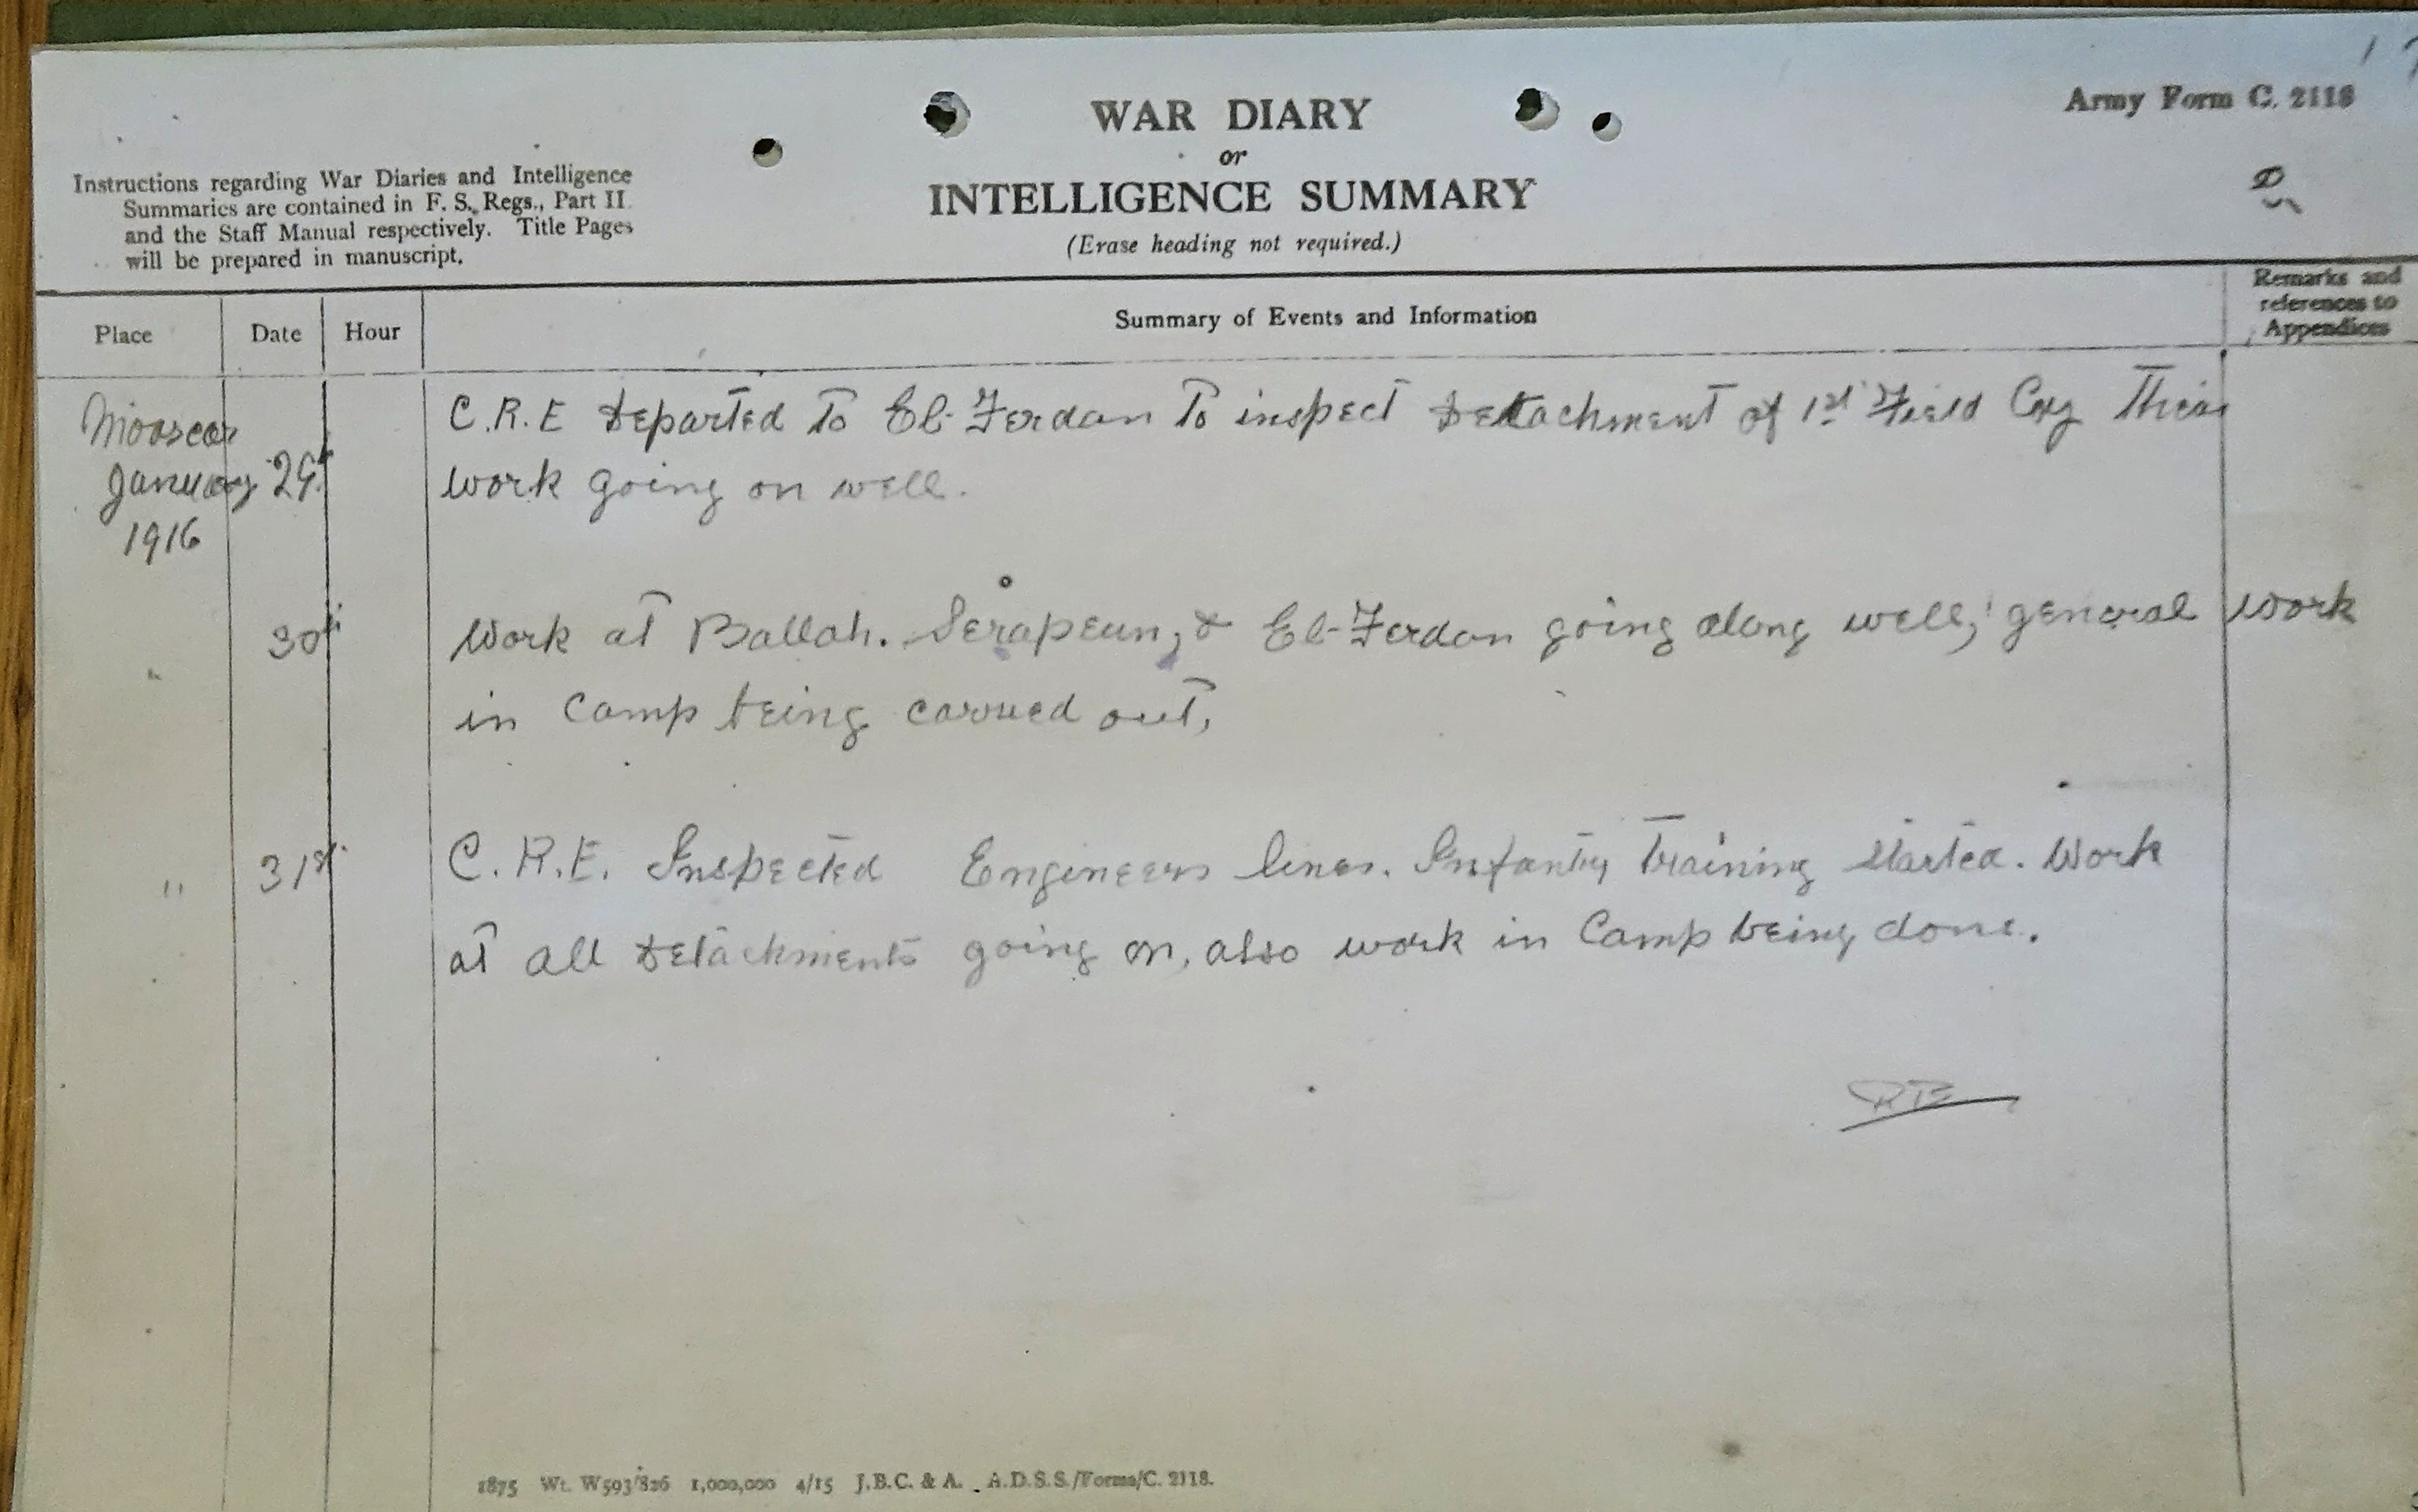 Army Form C. 2118
WAR DIARY
or
INTELLIGENCE SUMMARY
(Erase heading not required.)
Instructions regarding War Diaries and Intelligence
Summaries are contained in F. S. Regs., Part II.
and the Staff Manual respectively. Title Pages
will be prepared in manuscript.
Place Date Hour Summary of Events and Information Remarks and
references to
Appendices
Moascar
January 29th
1916
C.R.E Departed To El-Ferdan To inspect Detachment of 1st Field Coy Their
work going on well.
30th Work at Ballah. Serapeum, & El-Ferdan going along well; general work
in Camp being carried out,
" 31st C.R.E. Inspected Engineers lines. Infantry Training started. Work
at all Detachments going on, also work in Camp being done.
1875 Wt. W593/826 1,000,000 4/15 J.B.C. & A. A.D.S.S./Forms/C. 2118.